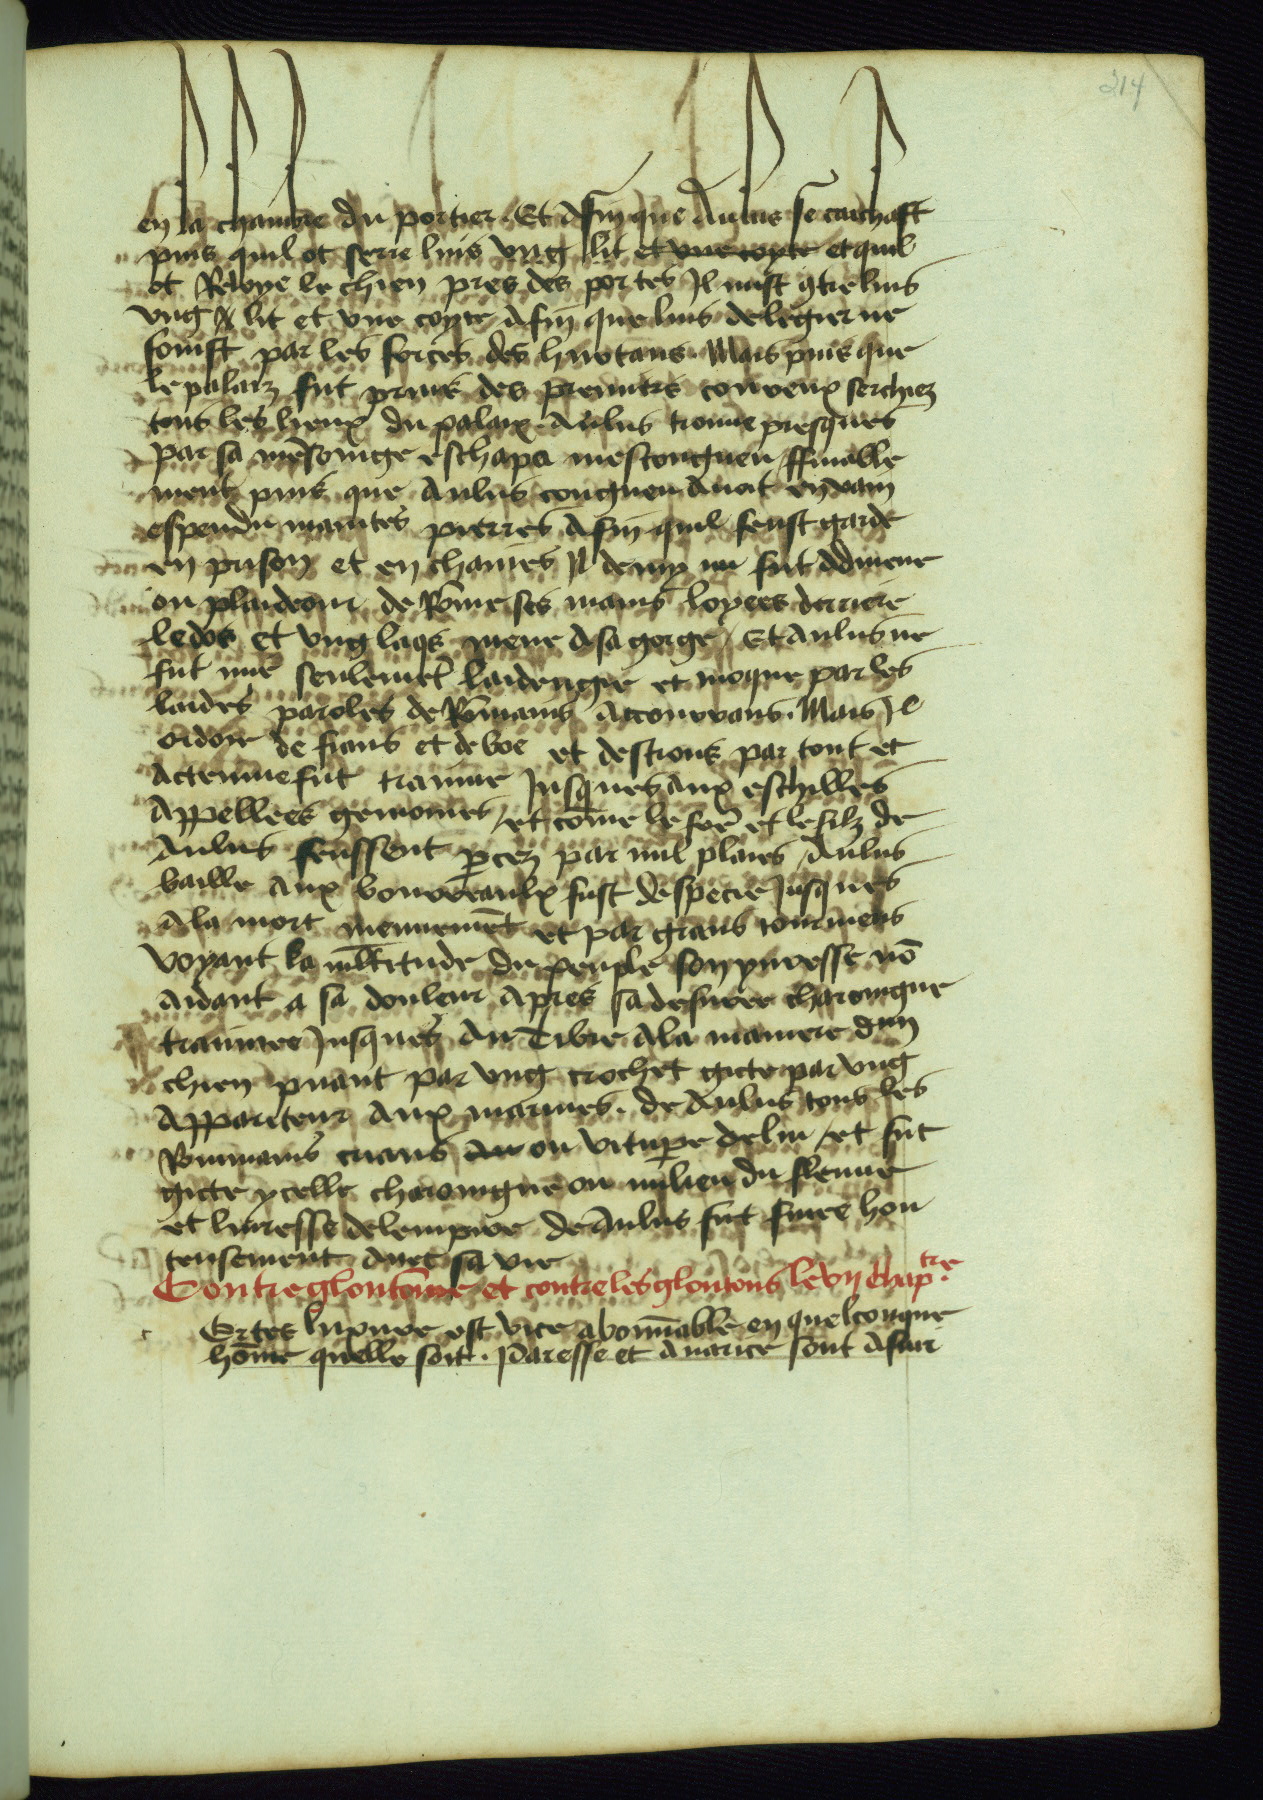 214
en la chambre du portier. Et Afin que Aulus se catchast
puis quil ot serre luis vng lit et vne coyte et quil
ot Reloye le chien pres des portes Il mist 9tre luis
vng lit et vne coyte Afin que luis de legier ne
souist par les forces des hurtans. Mais puis que
le palaiz fut prins des premiers coureux serchiez
tous les lieux du palaix. Aulus trouue presques
par sa mēsonige eschapa mescongneu ffinable
ment puis que Aulus congneu Auat en vain
espendu maintes pierres Afin quil feust garde
en prison et en chaines Il demy nu fut Admene
ou plaideour de Rōme ses mains loyees derriere
le dos et vng laqs mene A sa gorge / Et Aulus ne
fut mie seulemēt laidengie et moque par les
laides paroles de Rōmains Accourans. Mais Il
ordoie de fians et de boe et destrons par tout et
Actenue fut trainne Jusques aux eschilles
Appellees gemonies / et cōme le frē et le filz de
Aulus feussent percez par mil plaies / Aulus
baille Aux bourreaulx fust despecie Jusques
A la mort menuemēt et par grans tourmens
voyant la mltitude du peuple son yuresse nō
Aidant a sa douleur Apres sa desiree charongne
trainnee Jusques Au Tibre A la maniere dun
chien puant par vng crochet gicte par vng
Appariteur Aux marines. de Aulus tous les
Rommains crians ou vitupere de lui / et fut
gicte ycelle charongne ou milieu du fleuue
et luresse de lempire de Aulus fut finee hon
teusement Auec sa vie
Contre gloutōnie et contre les gloutons le vij chaptre.
c Ertes luxure est vice abominable en quelconque
hōme quelle soit. Paresse et Auarice sont A fuir